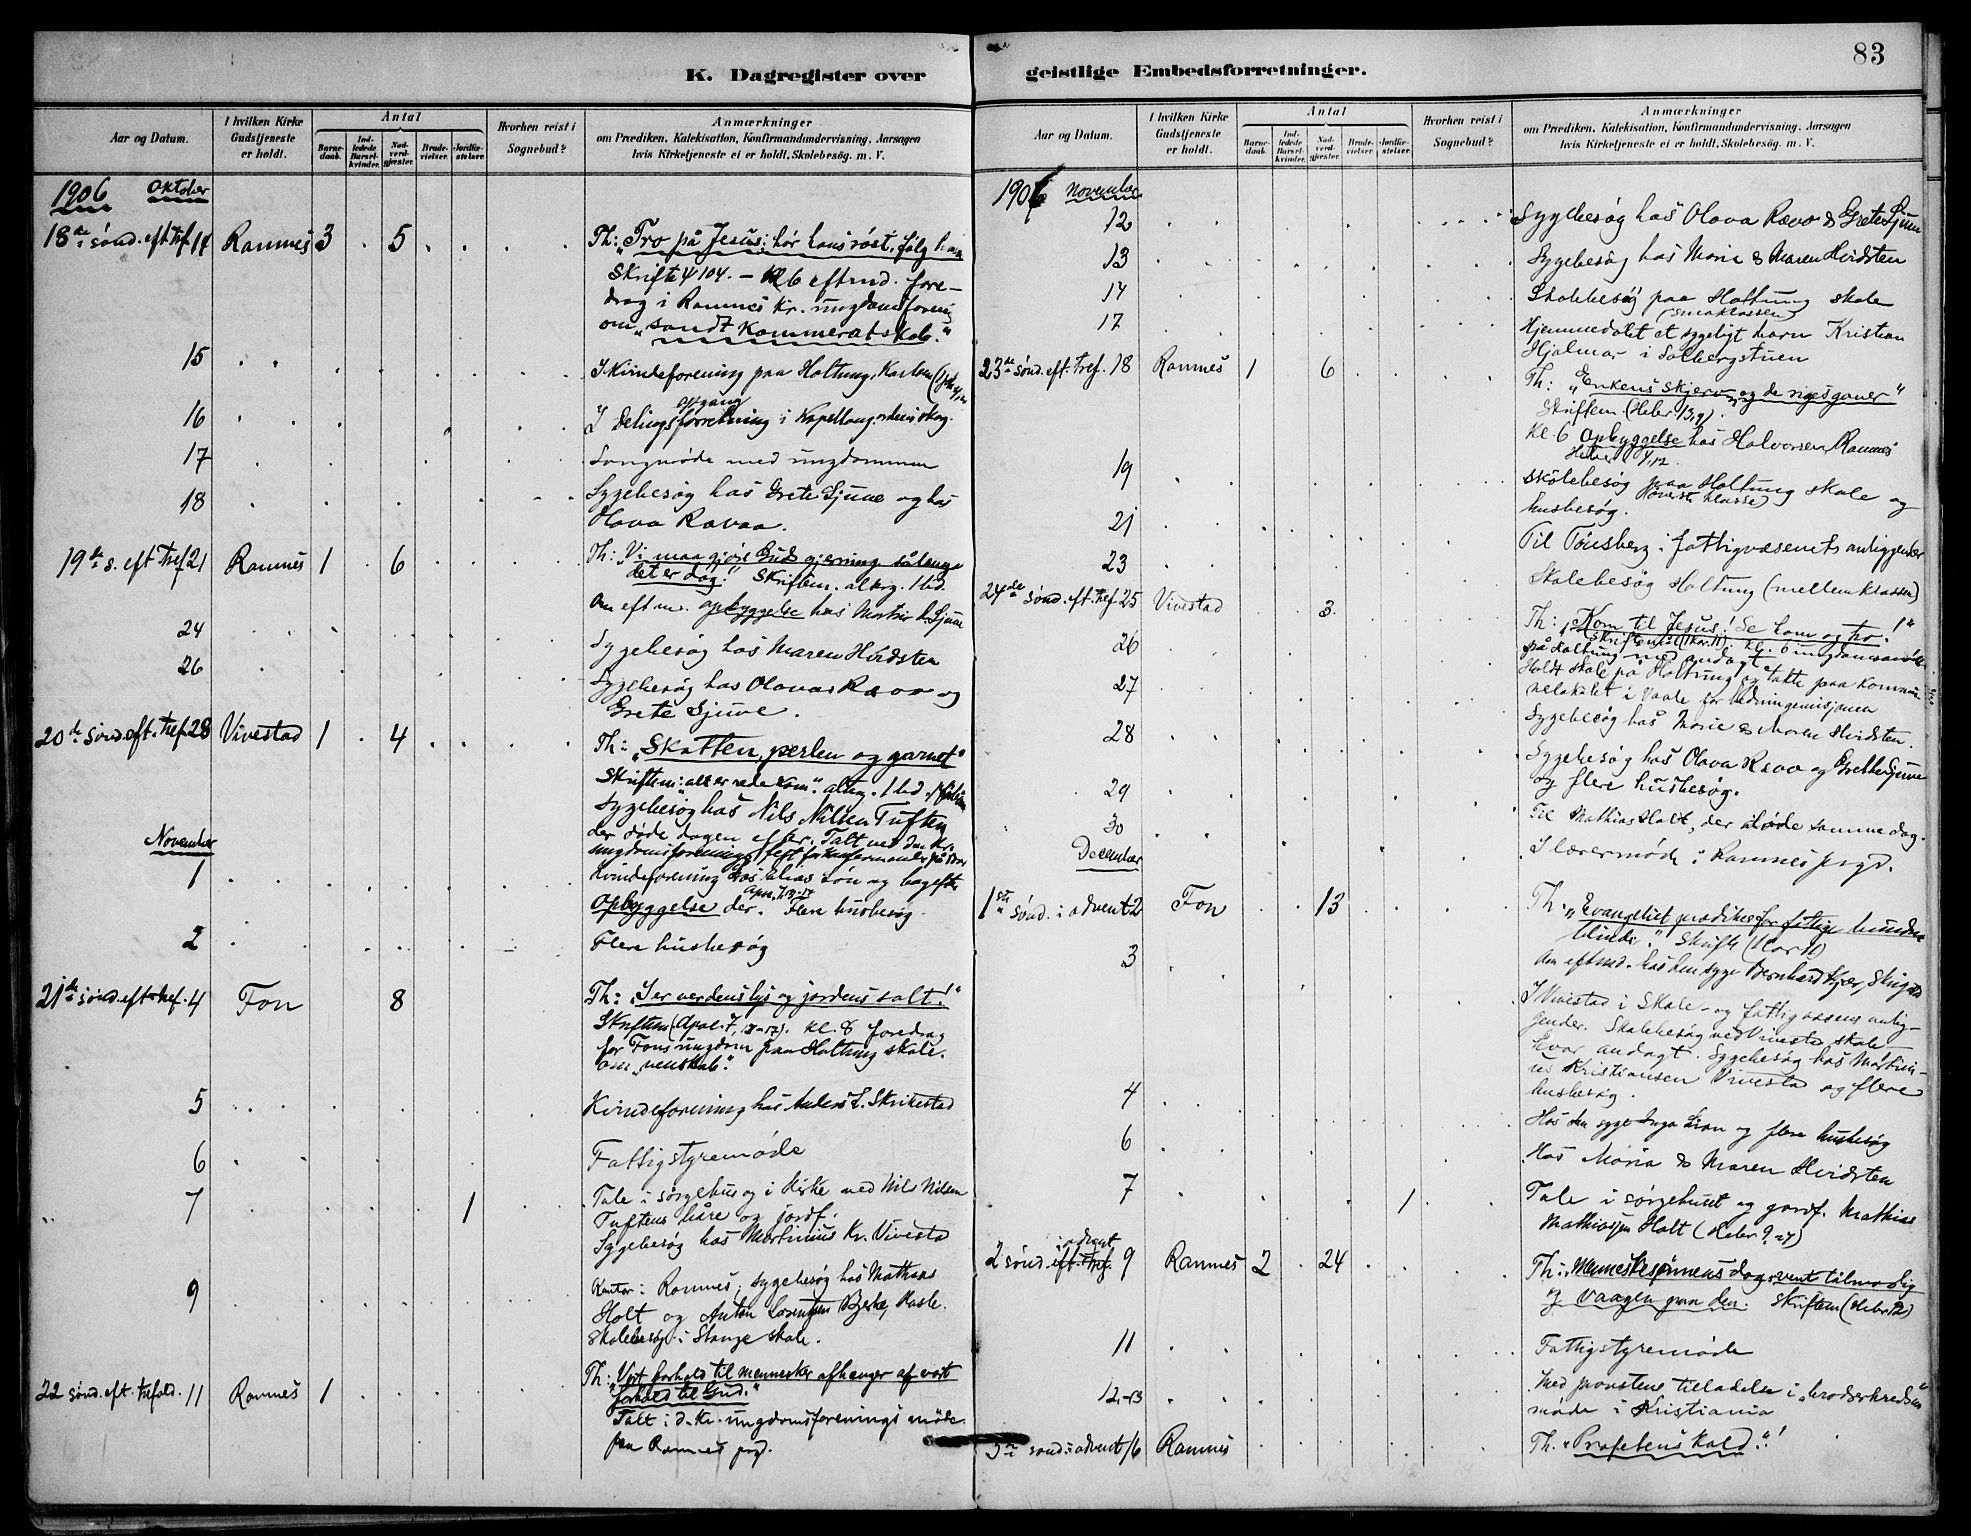 K. Dagregister over
Aar og Datum.
I hvilken Kirke Gudstjeneste er holdt.
Antal
Barnedaab.
Indledede Barselkvinder.
Nadverdgjester.
Brudevielser.
Jordfæstelser.
Hvorhen reist i Sognebud?
Anmærkninger
om Prædiken, Katekisation, Konfirmandundervisning, Aarsagen
hvis Kirketjeneste ei er holdt, Skolebesøg. m. V.
1906 Oktober
18de sønd. eft tref. 14 Ramnes 3 5 Th: "Tro på Jesus: hør hans røst, følg ham
Skrifte 4 104. – Kl 6 eftmd. fore-
drag i Ramnes kr. ungdomsforening
om "sandt kammeratskab."
15 I Kvindeforening paa Holtung
16 I Delingsforretning i
17 Sangmøde med ungdommen
18 Sygebesøg hos Grete Sjuve og hos
Olava Ravaa.
19de s. eft tref 21 Ramnes 1 6 Th: Vi maa gjøre Guds gjerning sålænge
det er dag! Skriftem. alterg. 1 lid.
Om eftm. opbyggelse hos Martin Sjuve
24 Sygebesøg hos Maren Hvidsten
26 Sygebesøg hos Olava Ravo og
Grete Sjuve.
20de sønd. eft. tref. 28 Vivestad 1 4 Th: "Skatten, perlen og garnet"
Skriftem: "alt er rede kom". alterg. 1 lid
Sygebesøg hos Nils Nilsen Tuften
der døde dagen efter. Talt ved den kr.
ungdomsforenings fest for konfirmander på
November
1 Kvindeforening hos Elias Fon og bagefter
Opbyggelse der. Apoc. 7,13-17 Flere husbesøg.
2 Flere husbesøg
21de sønd. eft tref. 4 Fon 8 Th: "I er verdens lys og jordens salt!"
Skriftem (Apoc. 7, 13-17). kl. 8 foredrag
for Fons ungdom paa Holtung skole.
om "venskab".
5 Kvindeforening hos Anders L. Skrikestad
6 Fattigstyremøde
7 1 Tale i sørgehus og i Kirke ved Nils Nilsen
Tuftens båre og jordf.
Sygebesøg hos Martinius Kr. Vivestad
9 Kontor i Ramnes; sygebesøg hos Mathias
Holt og Anton Lorentzen Bjerke, Hasle.
Skolebesøg i Stange skole.
22 sønd. eft. trefold. 11 Ramnes 1 Th: "Vort forhold til mennesker afhænger af vort
forhold til Gud."
Talt i d. Kr. ungdomsforenings møde
paa Ramnes prgd.
geistlige Embedsforretninger.
83
Aar og Datum.
I hvilken Kirke Gudstjeneste er holdt.
Antal
Barnedaab.
Indledede Barselkvinder.
Nadverdgjester.
Brudevielser.
Jordfæstelser.
Hvorhen reist i Sognebud?
Anmærkninger
om Prædiken, Katekisation, Konfirmandundervisning, Aarsagen
hvis Kirketjeneste ei er holdt, Skolebesøg. m. V.
1906 November
12 Sygebesøg hos Olava Rævo & Grete Sjuve
13 Sygebesøg hos Marie & Maren Hvidsten
14 Skolebesøg paa Holtung skole
(småklassen)
17 Hjemmedøbt et sygeligt barn Kristian
Hjalmar i Solbergstuen
23de sønd. eft. tref. 18 Ramnes 1 6 Th: "Enkens skjerv og de riges gaver"
Skriftem (Hebr 13,9).
Kl. 6 Opbyggelse hos Halvorsen, Ramnes
Hebr 4,12.
19 Skolebesøg paa Holtung skole og
(øverste klasse)
husbesøg.
21 Til Tønsberg i fattigvæsenets anliggender
23 Skolebesøg Holtung (mellemklassen)
24de sønd. eft. tref. 25 Vivestad 3 Th: "Kom til Jesus! Se ham og tro!"
på Holtung med andagt
26 Holdt skole på Holtung og talte paa kommu-
nelokalet i Vaale for hedningemisjonen
27 Sygebesøg hos Marie & Maren Hvidsten.
28 Sygebesøg hos Olava Rævo og Grethe Sjuve
og flere husbesøg.
29 Til Mathias Holt, der døde samme dag.
30 I lærermøde i Ramnes prgd.
December
1ste sønd. i advent 2 Fon 13 Th. "Evangeliet prædikes for fattige
blinde." Skrifte
Om eftmd. hos den syge Bernhard Kjær,
3 I Vivestad i Skole- og fattigvæsens anlig-
gender. Skolebesøg ved Vivestad skole
hvor andagt. Sygebesøg hos Martini-
us Kristiansen Vivestad og flere
husbesøg.
4 Hos den syge Inga Lian og flere husbesøg
6 Hos Maria & Maren Hvidsten
7 1 Tale i sørgehuset og jordf. Mathias
Mathiassen Holt (Hebr 9, 27)
2 sønd. i advent eft. tref. 9 Ramnes 2 24 Th: Menneskesønnens dag, vent tålmodig
og vaagen paa den. Skriftem (Hebr 12)
11 Fattigstyremøde
12-13 Med provstens tilladelse i "broderkredsen"
møde i Kristiania
3de sønd. i advent 16 Ramnes Th. "Profetens Kald"!